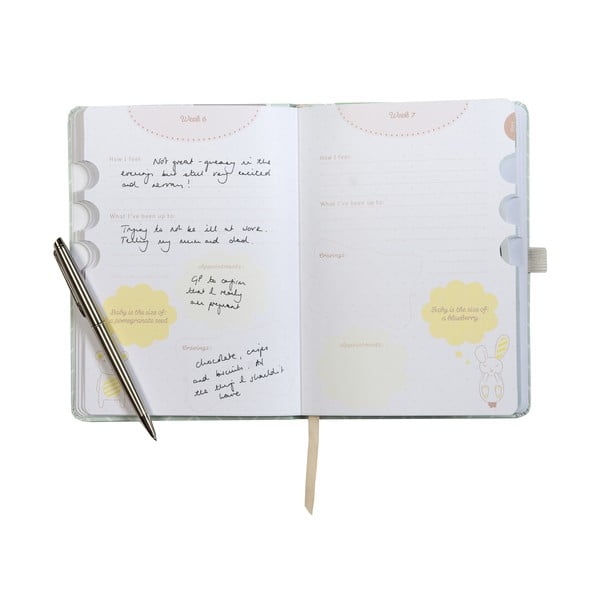 Week 6
How I feel:
Not great - queasy in the
evenings but still very excited
and nervous!
What I've been up to:
Trying to not be ill at work.
Telling my mum and dad.
Appointments:
GP to confirm
that I really
am pregnant
Baby is the size of:
a pomegranate seed
Cravings:
chocolate, crisps
and biscuits. All
the things I shouldn't
have
Week 7
How I feel:
What I've been up to:
Cravings:
Baby is the size of:
a blueberry
Appointments: